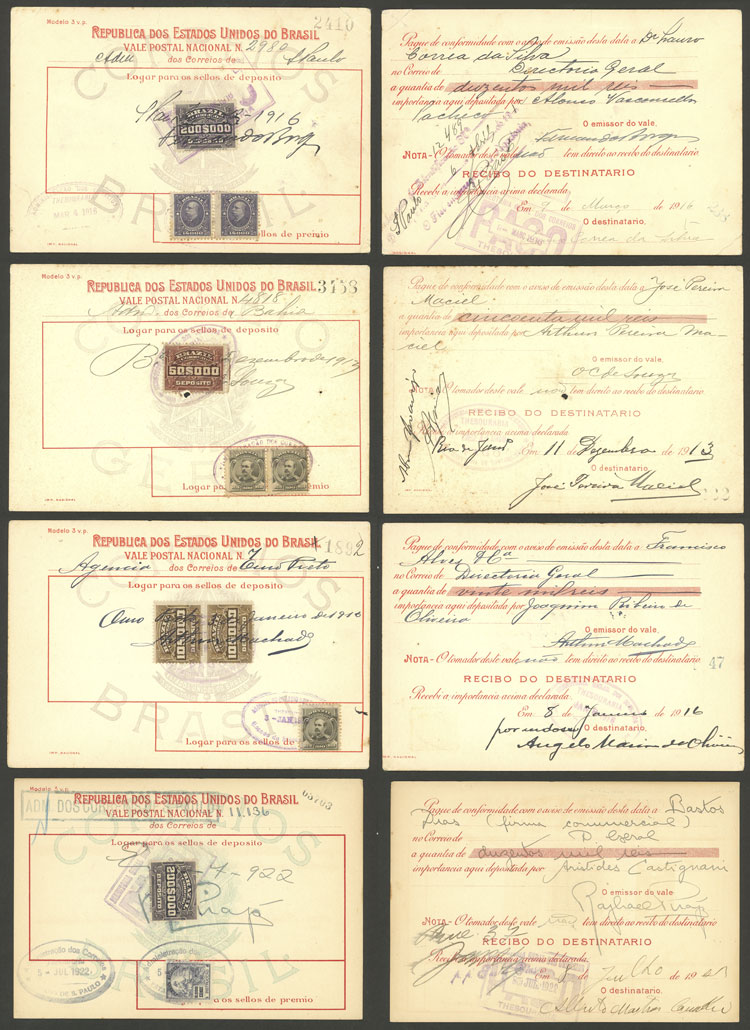 Modelo 3 v.p.
2410
REPUBLICA DOS ESTADOS UNIDOS DO BRASIL
VALE POSTAL NACIONAL N. 2989
dos Correios de S Paulo
Logar para os sellos de deposito
BRAZIL
200$000
DEPOSITO
1916
MAR 4 1916
Logar para os sellos de premio
IMP. NACIONAL
CORREIOS
BRASIL
Pague de conformidade com o aviso de emissão desta data a Dr Lauro
Correa da Silva
no Correio de Directoria Geral
a quantia de duzentos mil reis
importancia aqui depositada por Alonso Vasconcellos
Pacheco
O emissor do vale,
NOTA - O tomador deste vale não tem direito ao recibo do destinatario
RECIBO DO DESTINATARIO
Recebi a importancia acima declarada
Em 7 de Março de 1916
O destinatario
Correa da Silva
S Paulo
PAGO
Modelo 3 v.p.
3758
REPUBLICA DOS ESTADOS UNIDOS DO BRASIL
VALE POSTAL NACIONAL N. 4818
Adm. dos Correios da Bahia
Logar para os sellos de deposito
BRAZIL
50$000
DEPOSITO
Dezembro de 1913
Souza
Logar para os sellos de premio
IMP. NACIONAL
Pague de conformidade com o aviso de emissão desta data a José Pereira
Maciel
a quantia de cincoenta mil reis
importancia aqui depositada por Arthur Pereira Ma
ciel
O emissor do vale.
O C de Souza
NOTA - O tomador deste vale não tem direito ao recibo do destinatario.
RECIBO DO DESTINATARIO
Recebi a importancia acima declarada
Rio de Janro Em 11 Dezembro de 1913
O destinatario
José Pereira Maciel
Modelo 3 v.p.
1892
REPUBLICA DOS ESTADOS UNIDOS DO BRASIL
VALE POSTAL NACIONAL N. 7
Agencia dos Correios de Ouro Preto
Logar para os sellos de deposito
10$000
10$000
Ouro Janeiro de 1916
Arthur Machado
3-JAN 1916
Logar para os sellos de premio
IMP. NACIONAL
BRASIL
Pague de conformidade com o aviso de emissão desta data a Francisco
Alves & Ca
no Correio de Directoria Geral
a quantia de vinte mil reis
importancia aqui depositada por Joaquim Ribeiro de
Oliveira
O emissor do vale,
Arthur Machado
NOTA - O tomador deste vale não tem direito ao recibo do destinatario
47
RECIBO DO DESTINATARIO
Recebi a importancia acima declarada
Em 8 de Janeiro de 1916
por endosso
O destinatario.
Modelo 3 v.p.
03703
ADM. DOS CORREIOS DE S. PAULO
REPUBLICA DOS ESTADOS UNIDOS DO BRASIL
VALE POSTAL NACIONAL N. 11,136
dos Correios de
Logar para os sellos de deposito
200$000
DEPOSITO
922
Administração dos Correios
5 - JUL 1922
DE S. PAULO
Administração dos Correios
Logar para os sellos de premio
IMP. NACIONAL
Pague de conformidade com o aviso de emissão desta data a Bastos
Dias (firma commercial)
no Correio de D Geral
a quantia de duzentos mil reis
importancia aqui depositada por Aristides Castignani
O emissor do vale
Raphael
NOTA - O tomador deste vale não tem direito ao recibo do destinatario
RECIBO DO DESTINATARIO
Recebi a importancia acima declarada.
Em 8 Julho de 19
O destinatario.